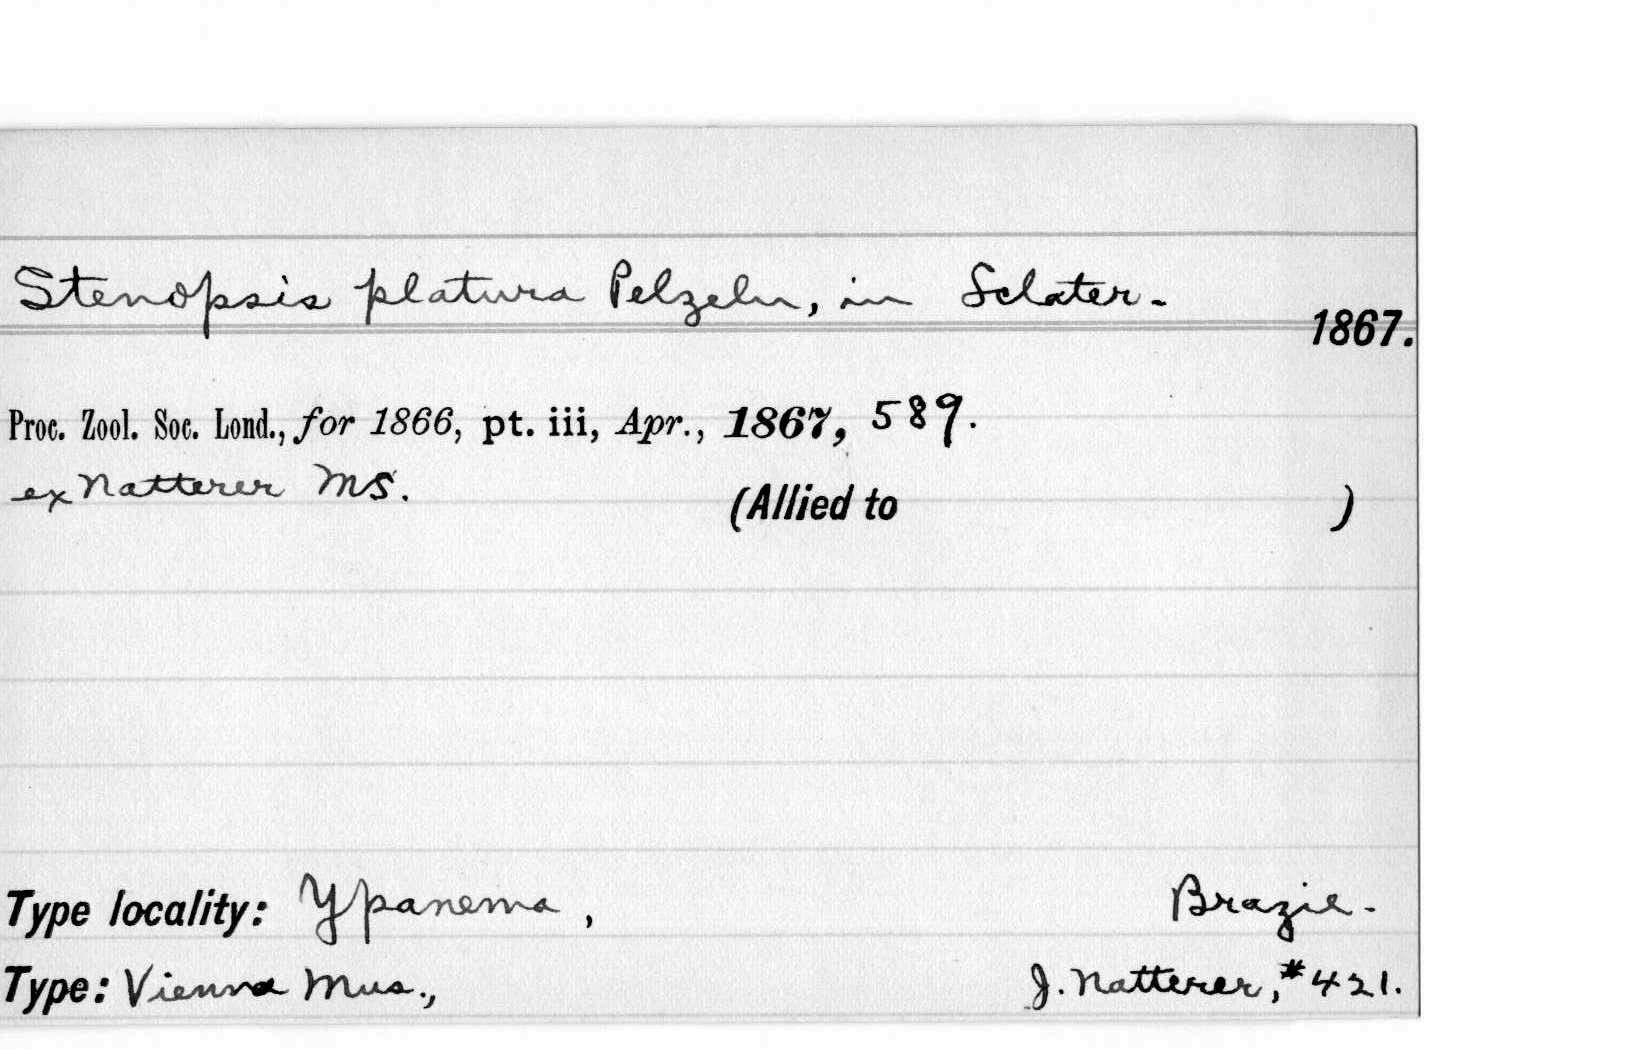 Stenopsis platura Pelzeln, in Sclater.
1867.
Proc. Zool. Soc. Lond., for 1866, pt. iii, Apr., 1867, 589.
ex Natterer MS.
(Allied to )
Type locality: Ypanema, Brazil.
Type: Vienna Mus., J. Natterer, #421.